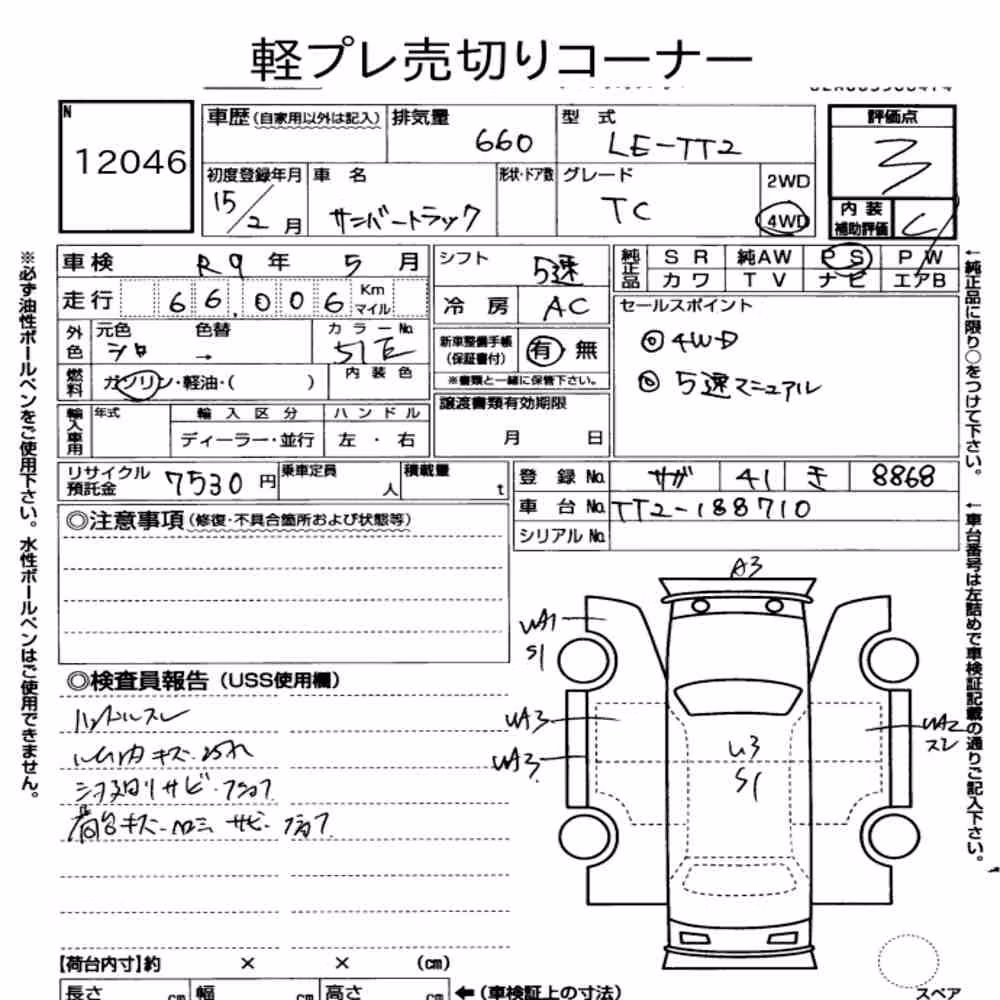 軽プレ売切りコーナー
N
12046
車歴 (自家用以外は記入)
排気量
660
型 式
LE-TT2
評価点
3
初度登録年月
15/2月
車 名
サンバートラック
形状・ドア数
グレード
TC
2WD
4WD
内 装
補助評価
C
車検 R9年 5月
走行 66,006 Km マイル
外色
元色 シロ
色替 →
カラーNo. 51E
燃料
ガソリン・軽油・( )
内 装 色
輸入車用
年式
輸 入 区 分
ハ ン ド ル
ディーラー・並行
左 ・ 右
シフト 5速
冷 房 AC
新車整備手帳
(保証書付)
有 無
※書類と一緒に保管下さい。
譲渡書類有効期限
月 日
純正品
S R 純AW P S P W
カ ワ T V ナ ビ エアB
セールスポイント
◎ 4WD
◎ 5速マニュアル
リサイクル
預託金
7530 円
乗車定員
人
積載量
t
登 録 No. サガ 41 き 8868
車 台 No. TT2-188710
シリアル No.
◎注意事項 (修復・不具合箇所および状態等)
◎検査員報告 (USS使用欄)
ハンドルスレ
シタ廻リサビ・フショク
荷台キズ・ヘコミ サビ・フショク
A3
UA1
S1
UA3
UA3
U3
S1
UA2
スレ
【荷台内寸】約 × × (cm)
長さ cm 幅 cm 高さ cm ←(車検証上の寸法)
スペア
※必ず油性ボールペンをご使用下さい。水性ボールペンはご使用できません。
←純正品に限り○をつけて下さい。
←車台番号は左詰めで車検証記載の通りご記入下さい。